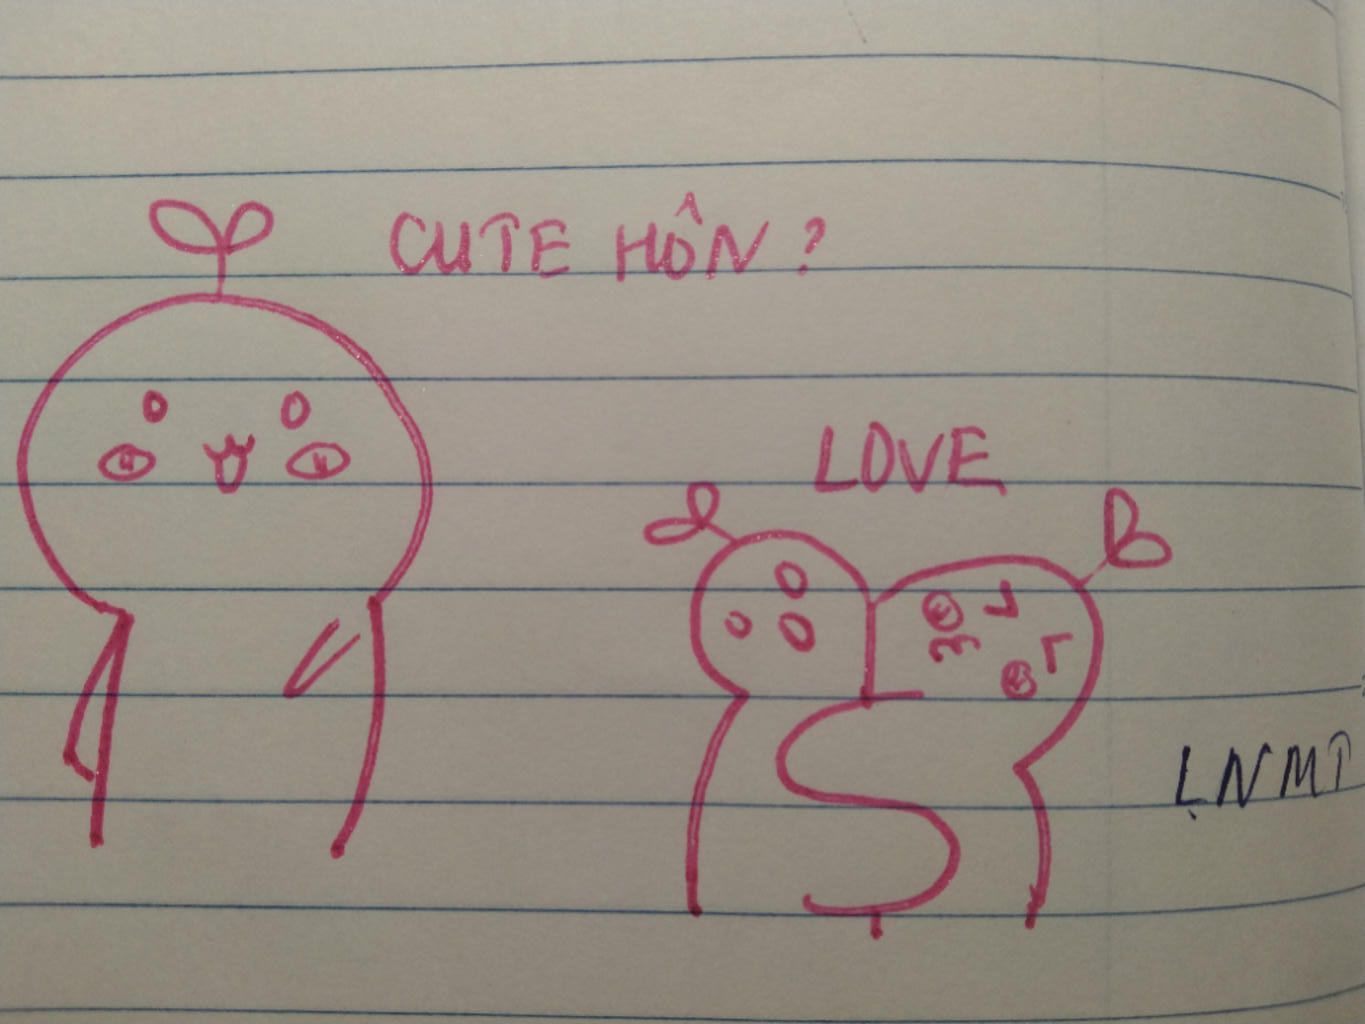 CUTE HÔN?
LOVE
LNMT